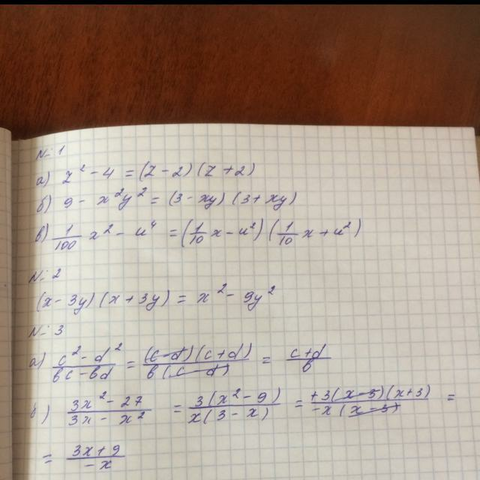 № 1
а) z² - 4 = (z - 2)(z + 2)
б) 9 - x²y² = (3 - xy)(3 + xy)
в) 1/100 x² - u⁴ = (1/10 x - u²)(1/10 x + u²)
№ 2
(x - 3y)(x + 3y) = x² - 9y²
№ 3
а) c² - d² / bc - bd = (c - d)(c + d) / b(c - d) = c + d / b
в) 3x² - 27 / 3x - x² = 3(x² - 9) / x(3 - x) = +3(x - 3)(x + 3) / -x(x - 3) =
= 3x + 9 / -x